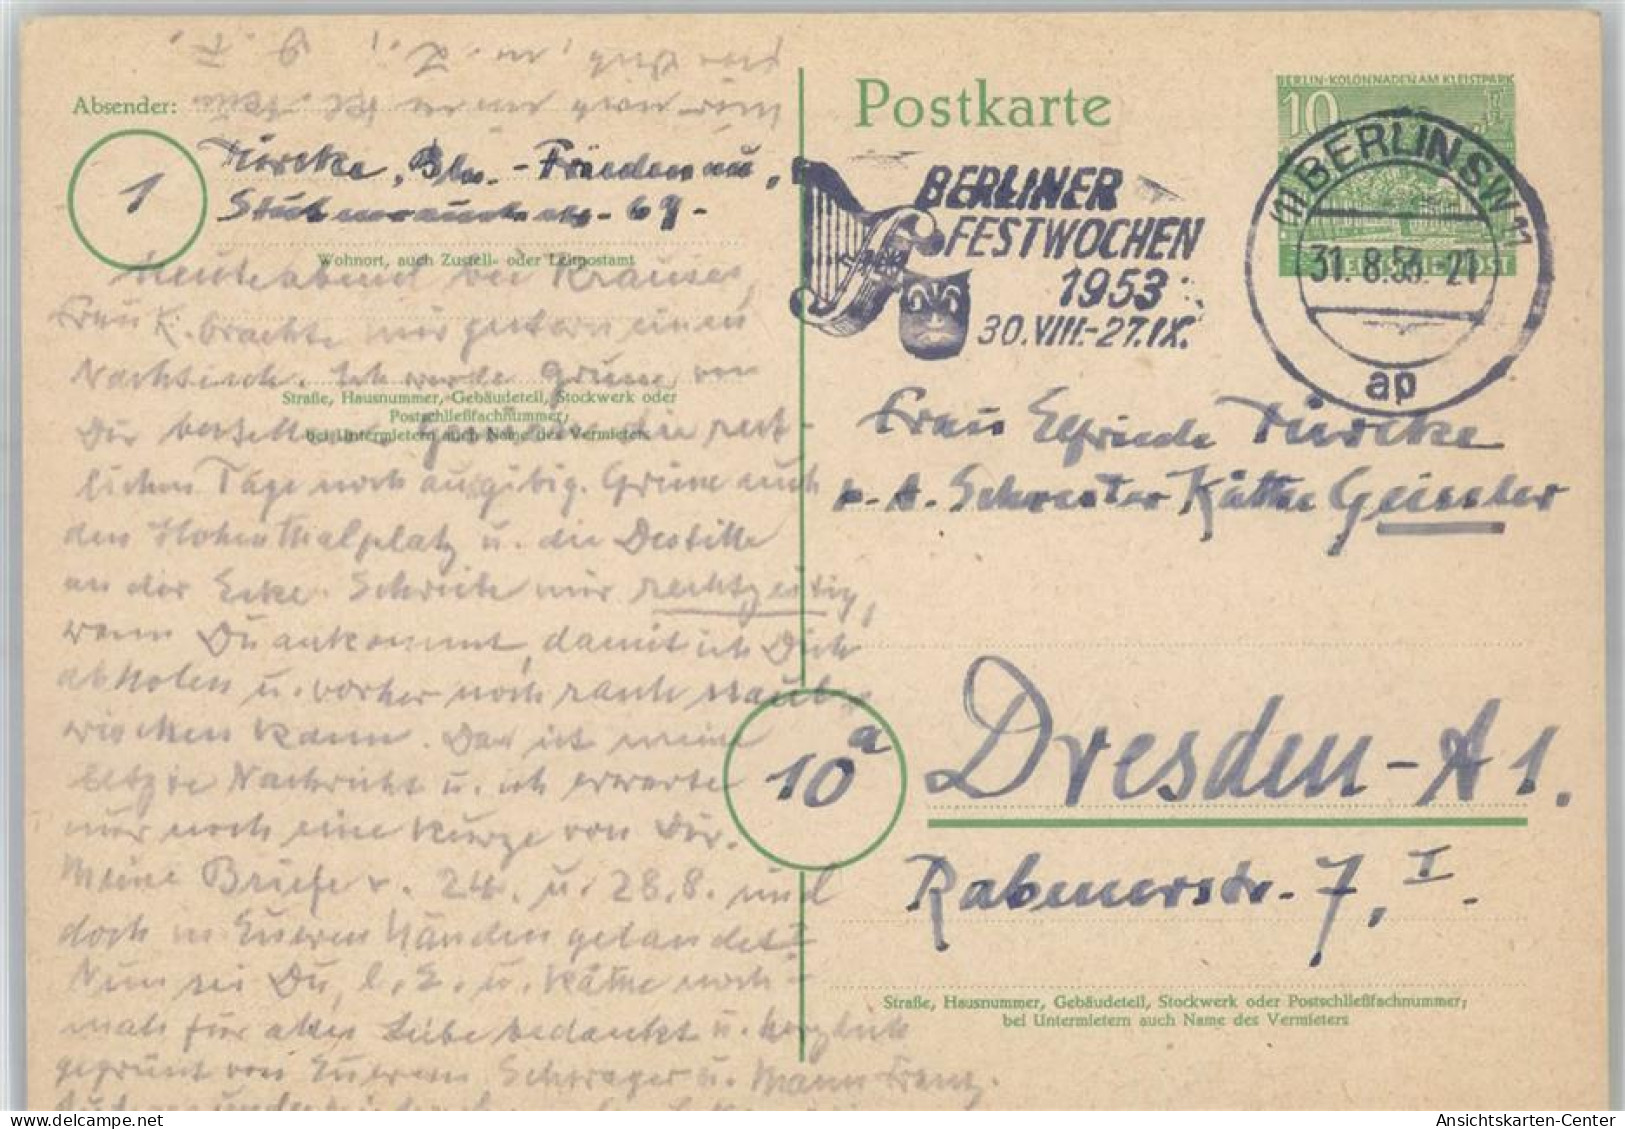 Absender:
1
Türcke, Bln.-Friedenau,
Stubenrauchstr. 69.
Wohnort, auch Zustell- oder Leitpostamt
Straße, Hausnummer, Gebäudeteil, Stockwerk oder
Postschließfachnummer;
bei Untermietern auch Name des Vermieters
Heute abend bei Krauses,
Frau K. brachte mir gestern einen
Nachtisch. Ich werde Grüne von
Dir bestellen. die rest-
lichen Tage noch ausgibig. Grüne auch
den Hohenthalplatz u. die Destille
an der Ecke. Schreibe mir rechtzeitig,
wann Du ankommst, damit ich Dich
abholen u. vorher noch rasch staub-
wischen kann. Das ist meine
letzte Nachricht u. ich erwarte
nur noch eine kurze von Dir.
Meine Briefe v. 24. u. 28.8. sind
doch in Eueren Händen gelandet?
Nun sei Du, l. E. u. Käthe noch-
mals für alles Liebe bedankt u. herzlich
gegrüßt von Euerem Schwager u. Mann Franz.
Postkarte
BERLIN-KOLONNADEN AM KLEISTPARK
10
DEUTSCHE POST
BERLINER
FESTWOCHEN
1953
30.VIII.-27.IX.
(1) BERLIN SW 11
31.8.53.-21
ap
Frau Elfriede Türcke
b. A. Schwester Käthe Geissler
10a
Dresden-A 1.
Rabenerstr. 7, I.
Straße, Hausnummer, Gebäudeteil, Stockwerk oder Postschließfachnummer;
bei Untermietern auch Name des Vermieters
Ansichtskarten-Center